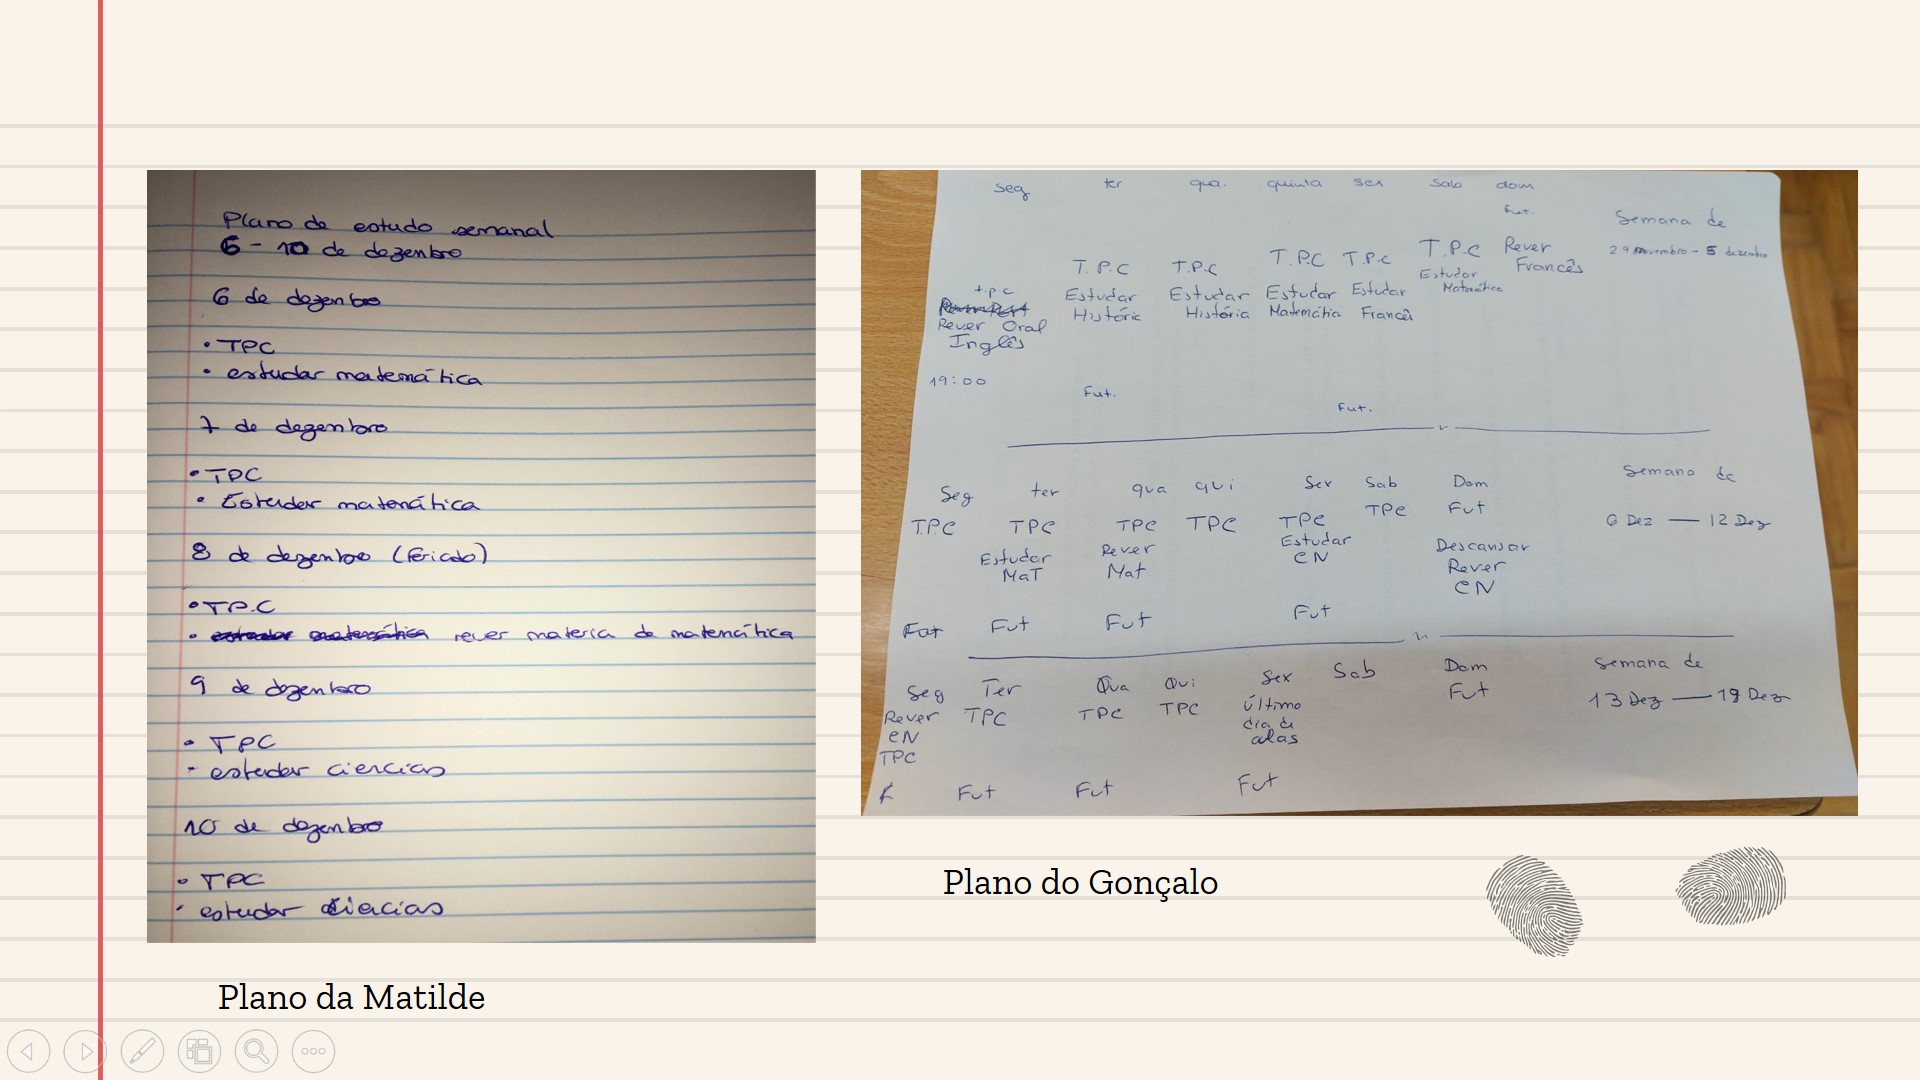 Plano de estudo semanal
6 - 10 de dezembro
6 de dezembro
• TPC
• estudar matemática
7 de dezembro
• TPC
• Estudar matemática
8 de dezembro (feriado)
• TP.C
• rever materia de matemática
9 de dezembro
• TPC
- estudar ciencias
10 de dezembro
• TPC
• estudar ciencias
Plano da Matilde
seg ter qua. quinta sex sab dom
fut.
Semana de
29 novembro - 5 dezembro
t.p.c T.P.C T.P.C T.P.C T.P.C T.P.C Rever
Francês
Estudar Estudar Estudar Estudar Estudar
História História Matemática Francês Matemática
Rever Oral
Inglês
19:00 Fut. Fut.
Seg ter qua qui Sex Sab Dom Semana de
TPC TPC TPC TPC TPC TPC Fut 6 Dez — 12 Dez
Estudar Rever Estudar Descansar
MaT Mat CN Rever
CN
Fut Fut Fut Fut
Seg Ter Qua Qui Sex Sab Dom Semana de
Rever TPC TPC TPC Último Fut 13 Dez — 19 Dez
CN dia de
TPC aulas
Fut Fut Fut
Plano do Gonçalo